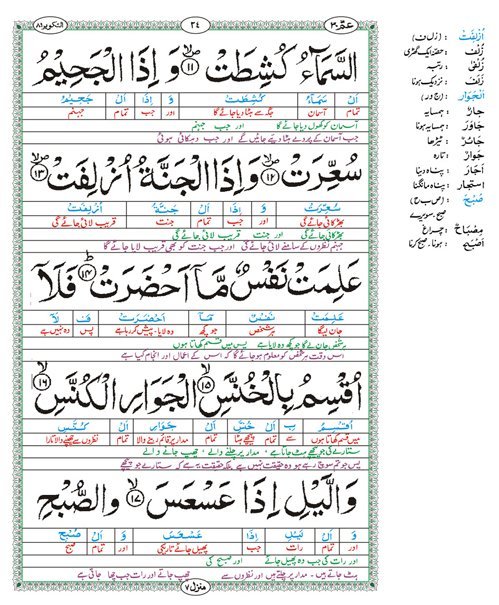 عمّ ٣٠
٣٤
التكوير ٨١
السَّمَآءُ كُشِطَتْ ۙ﴿١١﴾ وَ اِذَا الْجَحِيْمُ
اَلْ سَمَآءُ كُشِطَتْ وَ اِذَا اَلْ جَحِيْمُ
تمام آسمان جگہ سے ہٹا دیا جائے گا اور جب تمام جہنم
آسمان کو کھول دیا جائے گا اور جب جہنم
جب آسمان کے پردے ہٹا دیے جائیں گے اور جب دہکائی ہوئی
سُعِّرَتْ ۙ﴿١٢﴾ وَاِذَا الْجَنَّةُ اُزْلِفَتْ ۙ﴿١٣﴾
سُعِّرَتْ وَ اِذَا اَلْ جَنَّةُ اُزْلِفَتْ
بھڑکائی جائے گی اور جب تمام جنت قریب لائی جائے گی
بھڑکائی جائے گی اور جب جنت قریب لائی جائے گی
جہنم نظروں کے سامنے لائی جائے گی اور جب جنت کو بھی قریب لایا جائے گا
عَلِمَتْ نَفْسٌ مَّاۤ اَحْضَرَتْ ؕ﴿١٤﴾ فَلَاۤ
عَلِمَتْ نَفْسٌ مَا اَحْضَرَتْ فَ لَا
جان لیگا ہر شخص جو کچھ وہ لایا۔ پیش کر رہا ہے پس وہ نہیں ہے
ہر شخص جان لے گا جو کچھ وہ لایا ہے پس میں قسم کھاتا ہوں
اس وقت ہر شخص کو معلوم ہو جائے گا کہ اس کے اعمال اور انجام کیا ہے
اُقْسِمُ بِالْخُنَّسِ ۙ﴿١٥﴾ الْجَوَارِ الْكُنَّسِ ۙ﴿١٦﴾
اُقْسِمُ بِ اَلْ خُنَّسِ اَلْ جَوَارِ اَلْ كُنَّسِ
میں قسم کھاتا ہوں سے تمام پیچھے ہٹنا تمام مدار پر قائم رہنے والا تمام نظروں سے چھپنے والا تارا
ستارے کی جو پیچھے ہٹ جاتا ہے مدار پر چلنے والے۔ چھپ جانے والے
پس جو تم سوچ رہے ہو وہ حقیقت نہیں ہے بلکہ حقیقت یہ ہے کہ ستارے جو پیچھے
وَالَّيْلِ اِذَا عَسْعَسَ ۙ﴿١٧﴾ وَالصُّبْحِ
وَ اَلْ لَيْلِ اِذَا عَسْعَسَ وَ اَلْ صُبْحِ
اور تمام رات جب پھیل جائے تاریکی اور تمام صبح
اور رات کی جب وہ پھیل جائے اور صبح کی
ہٹ جاتے ہیں۔ مدار پر چلتے ہیں اور نظروں سے چھپ جاتے اور رات جب چھا جاتی ہے
منزل ٧
اُزْلِفَتْ (ز ل ف)
زُلَفٌ : حصہ ایک گھڑی
زُلْفٰى : رتبہ
زَلَفَ : نزدیک ہونا
اَلْجَوَارِ (ج و ر)
جَارٌ : ہمسایہ
جَاوَرَ : ہمسایہ ہونا
جَائِرٌ : ٹیڑھا
جَوَارٌ : تارہ
اَجَارَ : پناہ دینا
اِسْتَجَارَ : پناہ مانگنا
صُبْحٌ (ص ب ح)
صبح، سویرے
مِصْبَاحٌ : چراغ
اَصْبَحَ : ہونا، صبح کرنا